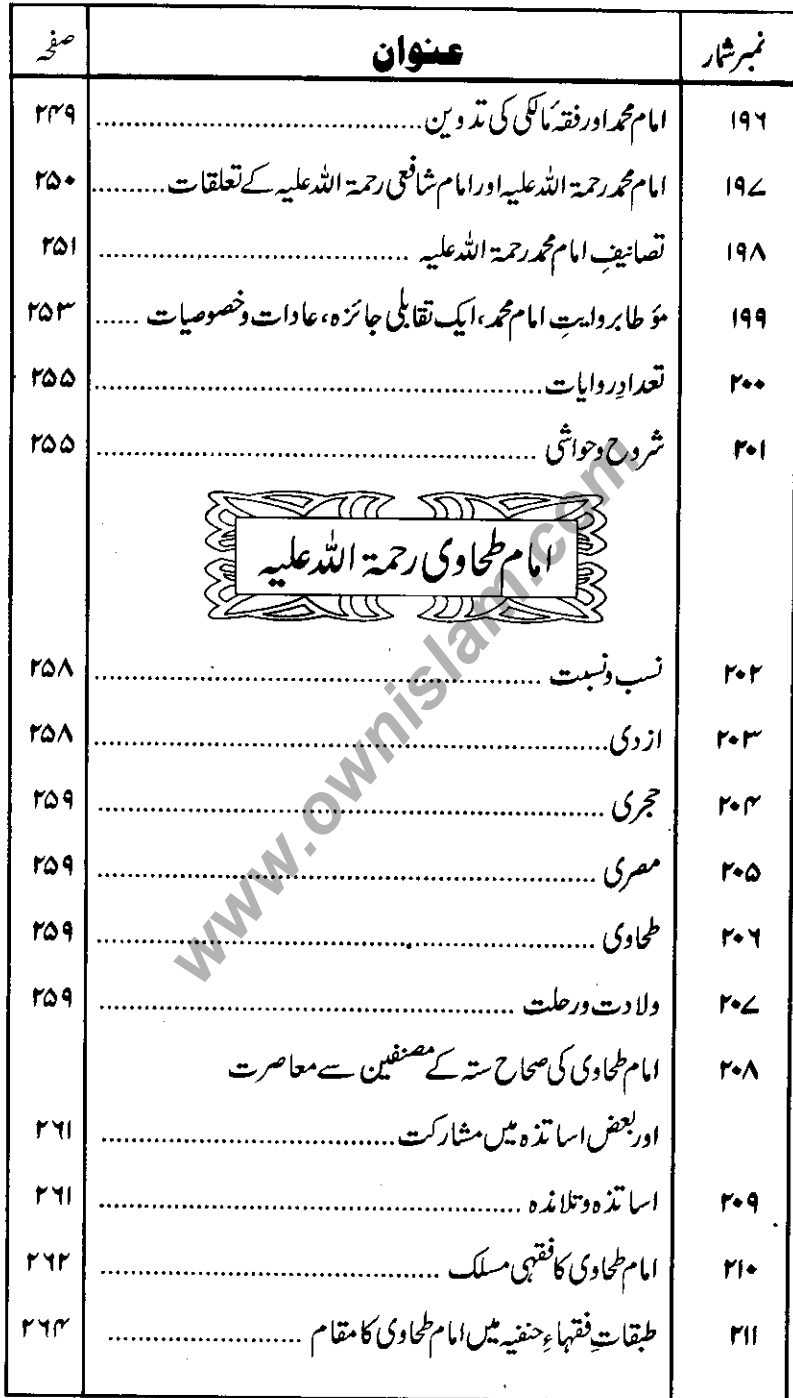 نمبر شمار عنوان صفحہ
۱۹۶ امام محمد اور فقہ مالکی کی تدوین ........ ۲۴۹
۱۹۷ امام محمد رحمۃ اللہ علیہ اور امام شافعی رحمۃ اللہ علیہ کے تعلقات ........ ۲۵۰
۱۹۸ تصانیفِ امام محمد رحمۃ اللہ علیہ ........ ۲۵۱
۱۹۹ مؤطا بروایتِ امام محمد، ایک تقابلی جائزہ، عادات وخصوصیات ...... ۲۵۳
۲۰۰ تعدادِ روایات ........ ۲۵۵
۲۰۱ شروح وحواشی ........ ۲۵۵
امام طحاوی رحمۃ اللہ علیہ
۲۰۲ نسب ونسبت ........ ۲۵۸
۲۰۳ ازدی ........ ۲۵۸
۲۰۴ حجری ........ ۲۵۹
۲۰۵ مصری ........ ۲۵۹
۲۰۶ طحاوی ........ ۲۵۹
۲۰۷ ولادت ورحلت ........ ۲۵۹
۲۰۸ امام طحاوی کی صحاح ستہ کے مصنفین سے معاصرت
اور بعض اساتذہ میں مشارکت ........ ۲۶۱
۲۰۹ اساتذہ وتلامذہ ........ ۲۶۱
۲۱۰ امام طحاوی کا فقہی مسلک ........ ۲۶۲
۲۱۱ طبقاتِ فقہاءِ حنفیہ میں امام طحاوی کا مقام ........ ۲۶۴
www.ownislam.com